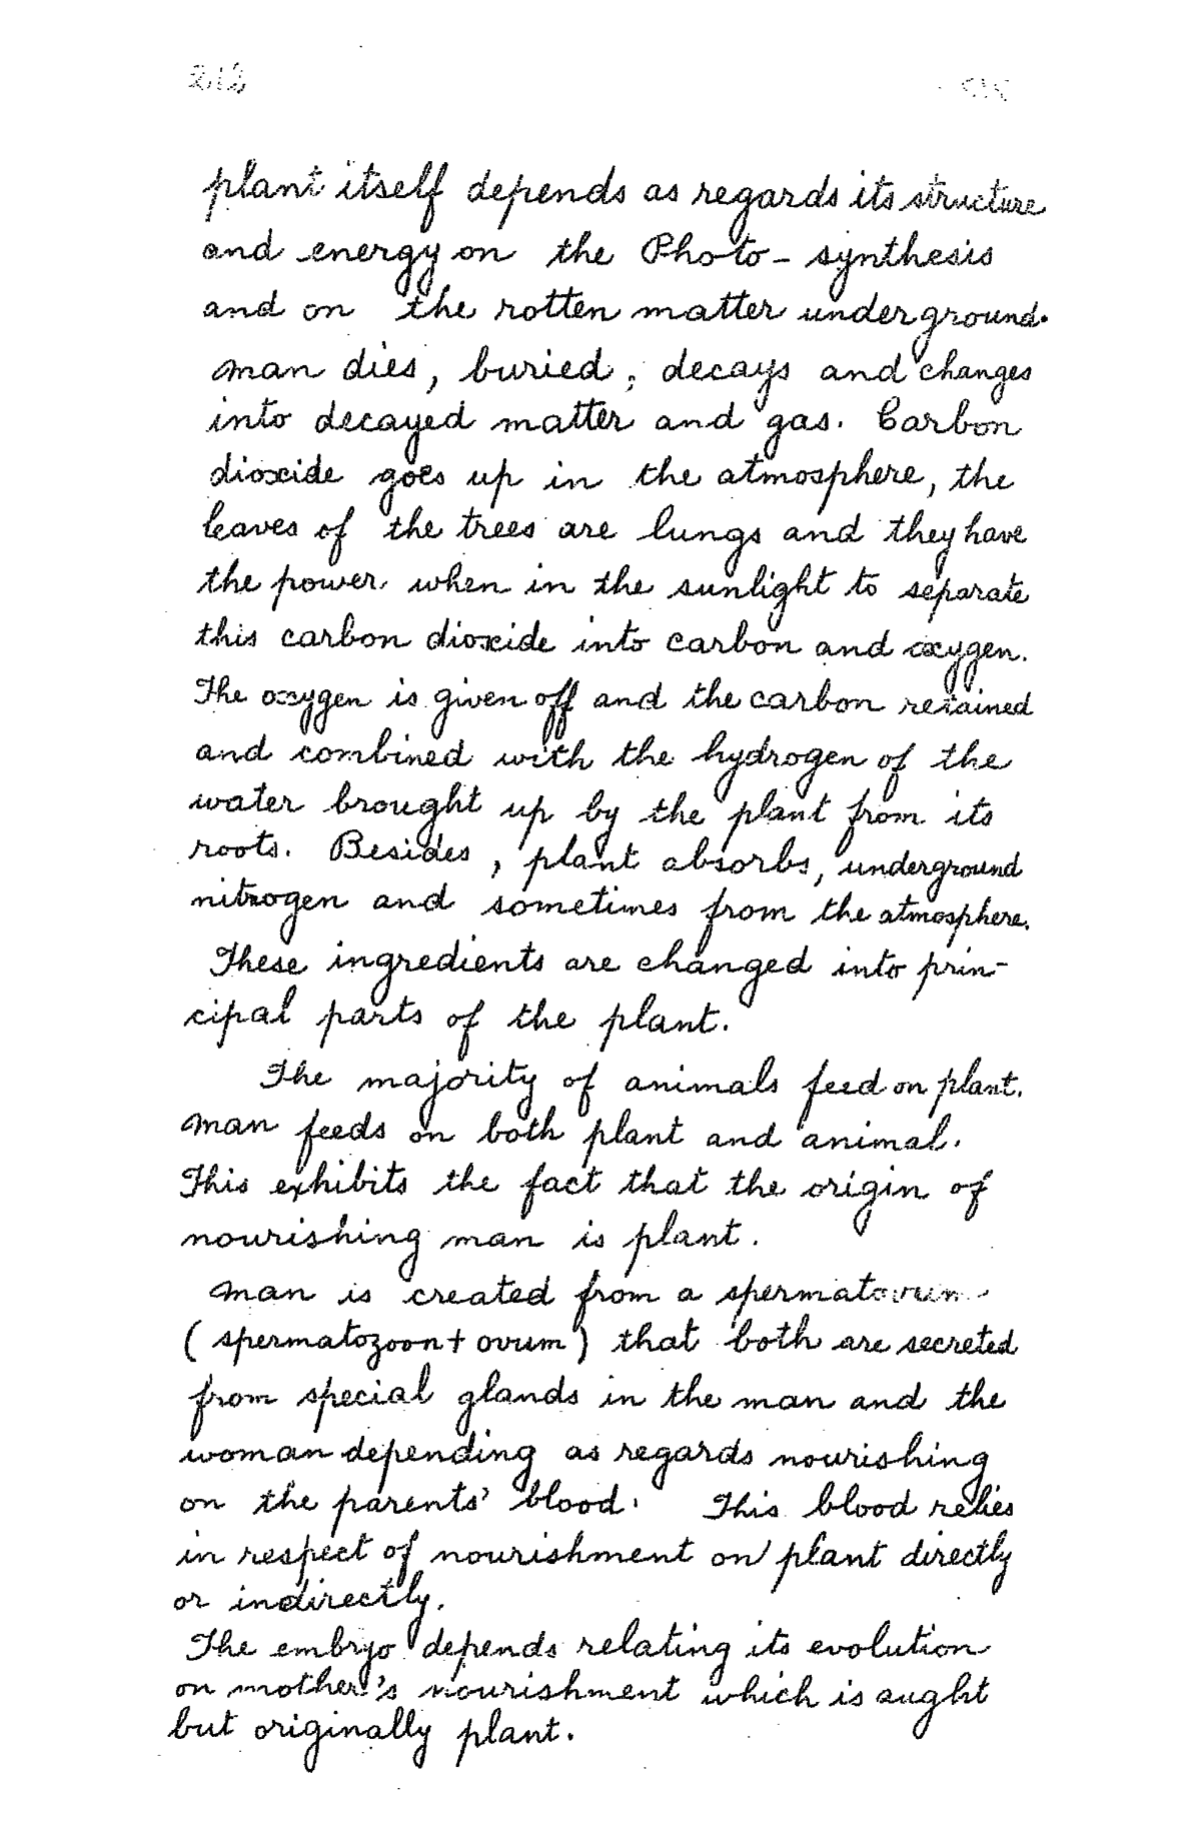 212
plant itself depends as regards its structure
and energy on the Photo-synthesis
and on the rotten matter underground.
man dies, buried, decays and changes
into decayed matter and gas. Carbon
dioxide goes up in the atmosphere, the
leaves of the trees are lungs and they have
the power when in the sunlight to separate
this carbon dioxide into carbon and oxygen.
The oxygen is given off and the carbon retained
and combined with the hydrogen of the
water brought up by the plant from its
roots. Besides, plant absorbs, underground
nitrogen and sometimes from the atmosphere.
These ingredients are changed into prin-
cipal parts of the plant.
The majority of animals feed on plant.
man feeds on both plant and animal.
This exhibits the fact that the origin of
nourishing man is plant.
man is created from a spermatovum
(spermatozoon + ovum) that both are secreted
from special glands in the man and the
woman depending as regards nourishing
on the parents' blood. This blood relies
in respect of nourishment on plant directly
or indirectly.
The embryo depends relating its evolution
on mother's nourishment which is aught
but originally plant.